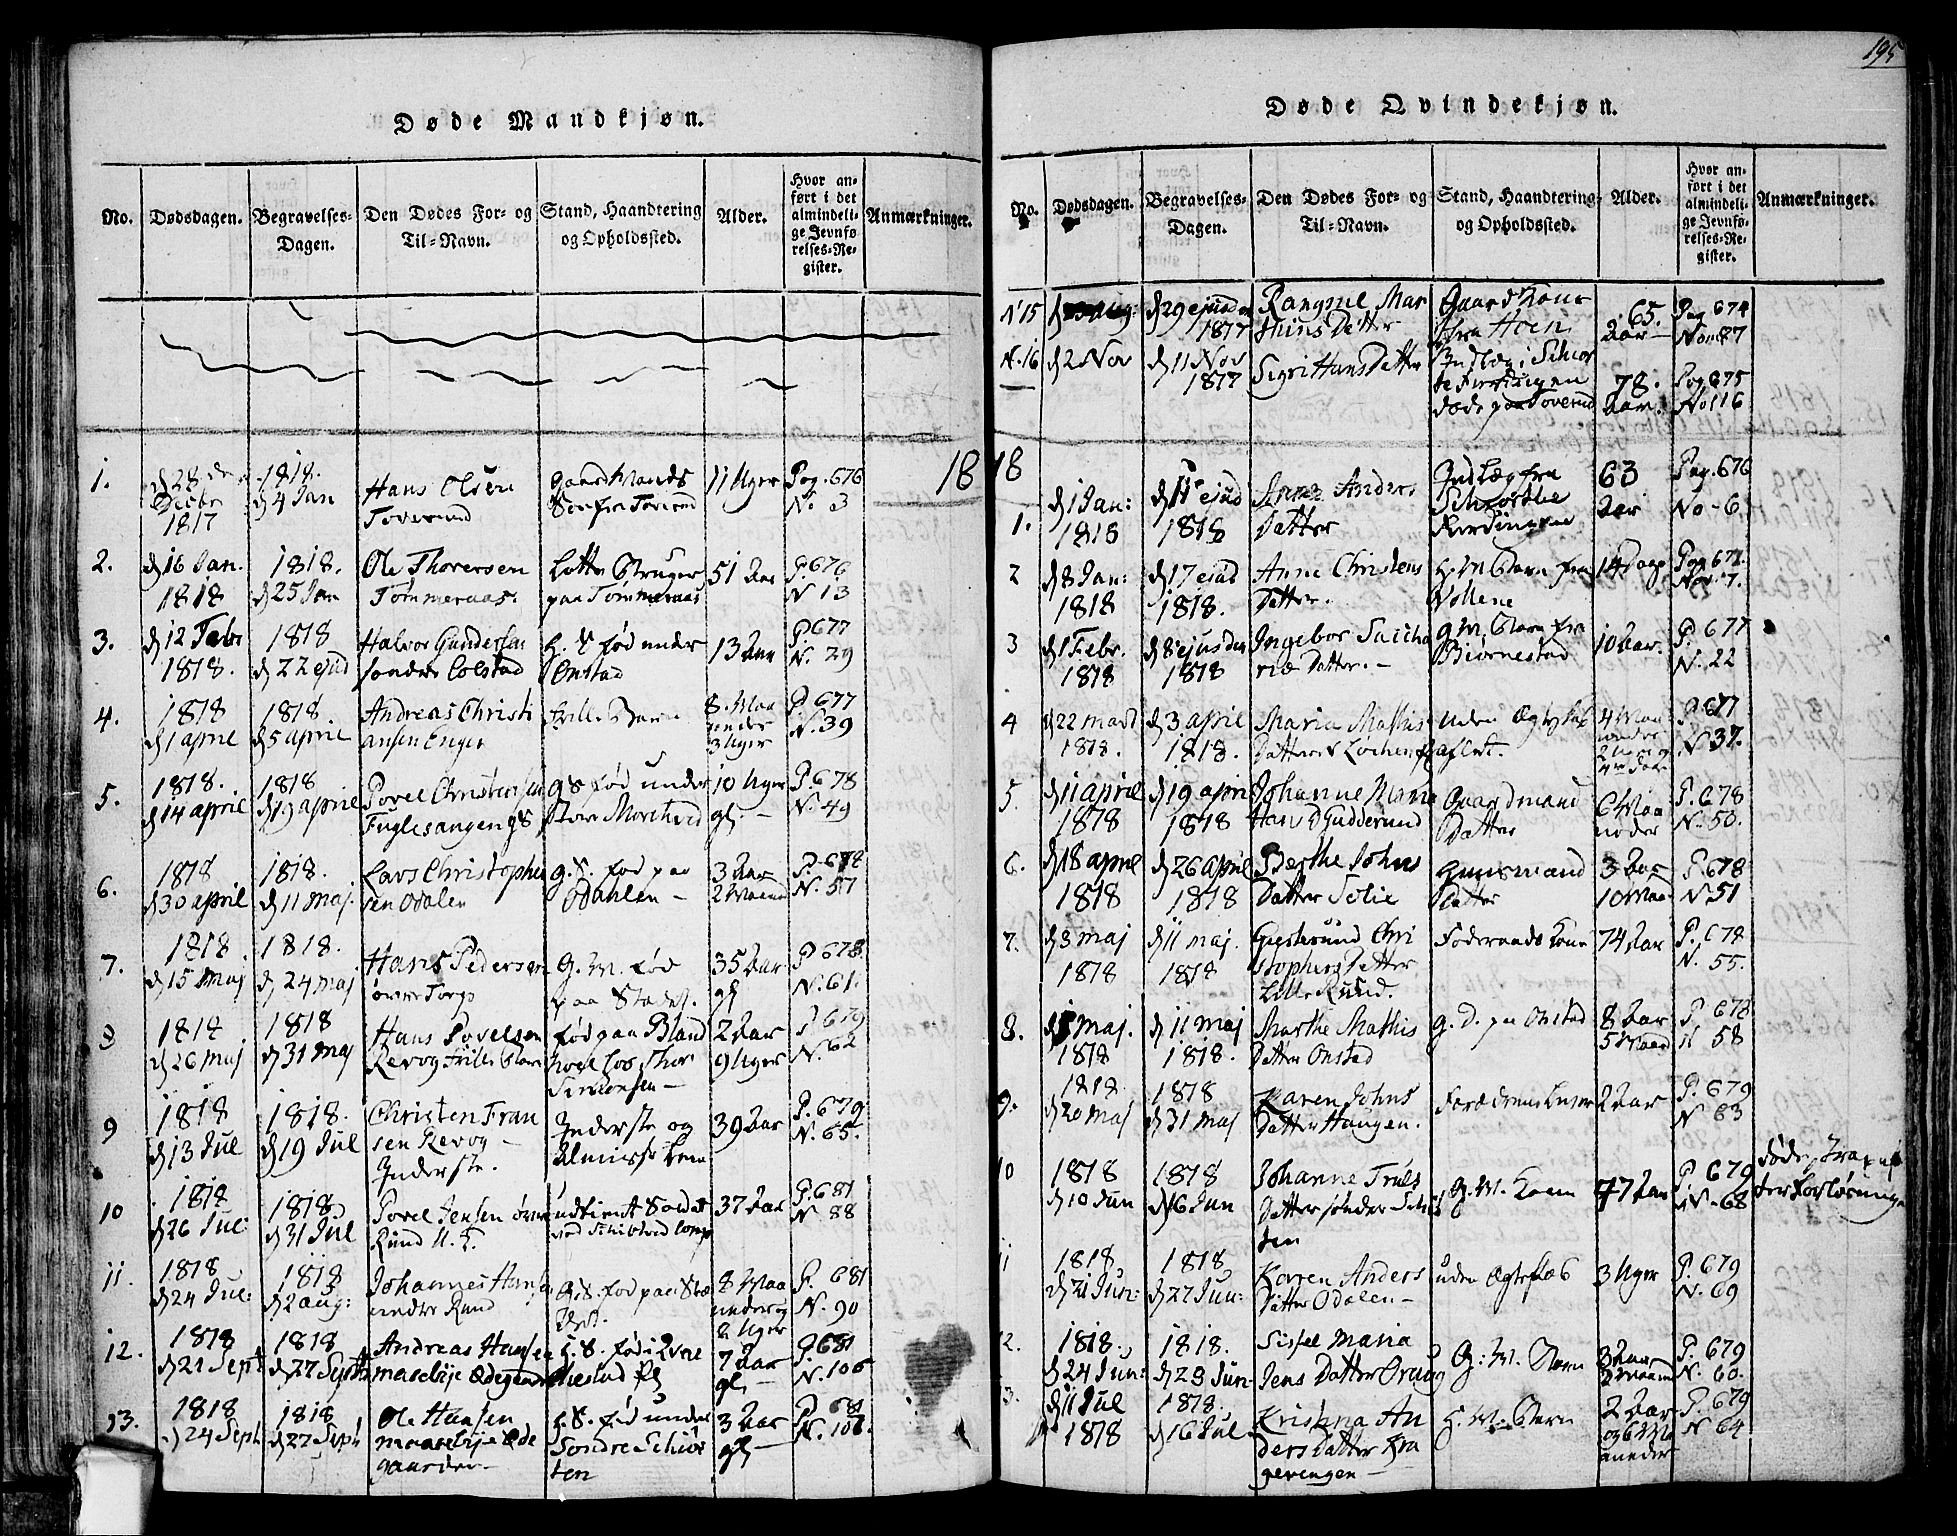 195
Døde Mandkjøn.
No. Dødsdagen. Begravelses-Dagen. Den Dødes For- og Til-Navn. Stand, Haandtering og Opholdssted. Alder. Hvor anført i det almindelige Jevnførelses-Register. Anmærkninger.
18
1. d 28 Decbr 1817 1818. d 4 Jan Hans Olsen Toverud Gaard Mands Søn fra Toverud 11 Uger Pag. 676 N. 3
2. d 16 Jan. 1818 1818. d 25 Jan Ole Thoversen Tømmeraas. paa Tømmeraas 51 Aar P. 676 N 13
3. d 12 Febr 1818. 1818 d 22 ejusd Halvor Gundersen søndre Colstad H. S. fød under Onstad 13 Aar P. 677 N. 29
4. 1818 d 1 april 1818. d 5 april Andreas Christiansen Enger Frille Barn 8 Maaneder 3 Uger P. 677 N. 39
5. 1818. d 14 april 1818 d 19 april Povel Christensen Fuglesangen GS G S fød under Store 10 Uger gl. P. 678 N. 49
6. 1818 d 30 april 1818. d 11 Maj. Lars Christophersen Odalen G. S. fød paa Odahlen 3 Aar 2 Maaned P. 678 N. 57
7. 1818. d 15 Maj 1818. d 24 Maj Hans Pedersen øvre Torp G. M. fød paa 35 Aar gl P 678 N. 61.
8 1818 d 26 Maj 1818 d 31 Maj Hans Povelsen Revog Frille Barn fød paa 2 Aar 9 Uger P 679 N. 62
9 1818 d 13 Jul 1818. d 19 Jul Christen Fransen Revog Inderste. Inderste og 39 Aar P. 679 N. 65.
10 1818 d 26 Jul: 1818 d 31 Jul Povel Jensen øvre Rund U. K. udtient Soldat ved Schibsted Comp 37 Aar P. 681 N 88
11. 1818 d 24 Jul: 1818 d 2 aug: Johannes Hansen nedre Rund G S. fød paa 8 Maaneder og 2 Uger P. 681 N. 90
12. 1818 d 21 Sept 1818 d 27 Sept Andreas Hansen Masebye Ødegaard H. S. fød i 7 Aar gl P. 681 N. 106
13. 1818 d 24 Sept. 1818 d 27 Sept Ole Hansen Maasebye Ødegaarden H. S. fød under Søndre Schiørten 3 Aar gl P 681 N. 108.
Døde Qvindekjøn.
No. Dødsdagen. Begravelses-Dagen. Den Dødes For- og Til-Navn. Stand, Haandtering og Opholdssted. Alder. Hvor anført i det almindelige Jevnførelses-Register. Anmærkninger.
N 15 d 29 ejusdem 1817 Rangnil Marthins Datter Gaard Kone fra Hoen 65. Aar Pag 674 No 87
N. 16 d 2 Nov d 11 Nov 1817 Sigri Hans Datter Indlæg i døde paa Toverud 78. Aar. Pag 675 No 116
18
1. d 1 Jan: 1818 d 11 ejusd 1818 Anne Anders Datter Indlæg fra 63 Aar Pag. 676 No - 6
2 d 8 Jan: 1818 d 17 ejusd 1818. Anne Christens Datter. H. M Barn fra Vollene 14 Dage Pag 672. No 7.
3 d 1 Febr. 1818 d 8 ejusdem 1818 Ingebor Sacharis Datter. - G M. Barn fra Biørnestad 10 Aar. P. 677 N. 22
4 d 22 Mart 1818. d 3 april 1818. Maria Mathis Datter Løchen Uden Egteskab aflet. 4 Maaneder P 677 N. 37.
5. d 11 april 1818 d 19 april 1818 Johanne Maria Hans D Gudderud Gaardmand Datter 6 Maaneder P. 678 N. 50.
6. d 18 april 1818 d 26 april 1818 Berthe Johns Datter Solie Huusmand Datter 3 Aar 10 Maa P 678 N 51
7. d 3 Maj 1818 d 11 Maj. 1818 Christophers Datter Lille Rund. Føderaads Kone 74 Aar P. 678 N. 55.
8. d 5 Maj. 1818 d 11 Maj 1818. Marthe Mathis Datter Onstad G. D. paa Onstad 8 Aar 5 Maaned P 678 N 58
9. 1818 d 20 Maj 1818 d 31 Maj Karen Johns Datter Haugen. 2 Aar P. 679 N 63
10 1818 d 10 Jun 1818 d 16 Jun Johanne Truls Datter søndre Schiørten G. M. Kone 47 Aar P. 679 N - 68 døde strax efter Forløsningen
11 1818, d 21 Jun: 1818, d 27 Jun: Karen Anders Datter Odalen - uden Egteskab 3 Uger P. 679 N. 69
12. 1818. d 24 Jun: 1818. d 28 Jun Sissel Maria Jens Datter Oraug G: M. Barn 3 Aar 2 Maaned P. 679 N. 60.
13. d 11 Jul 1818 1818. d 16 Jul Kristina Anders Datter Kragerengen - H. M. Barn 2 Aar og 6 Maaneder P. 679 N 64